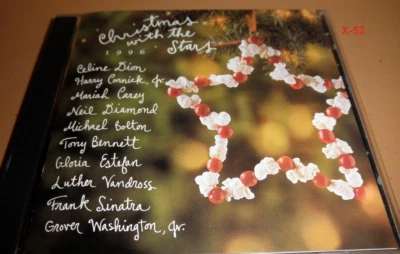 Christmas
with the
Stars
1996
Celine Dion
Harry Connick, Jr.
Mariah Carey
Neil Diamond
Michael Bolton
Tony Bennett
Gloria Estefan
Luther Vandross
Frank Sinatra
Grover Washington, Jr.
X-52